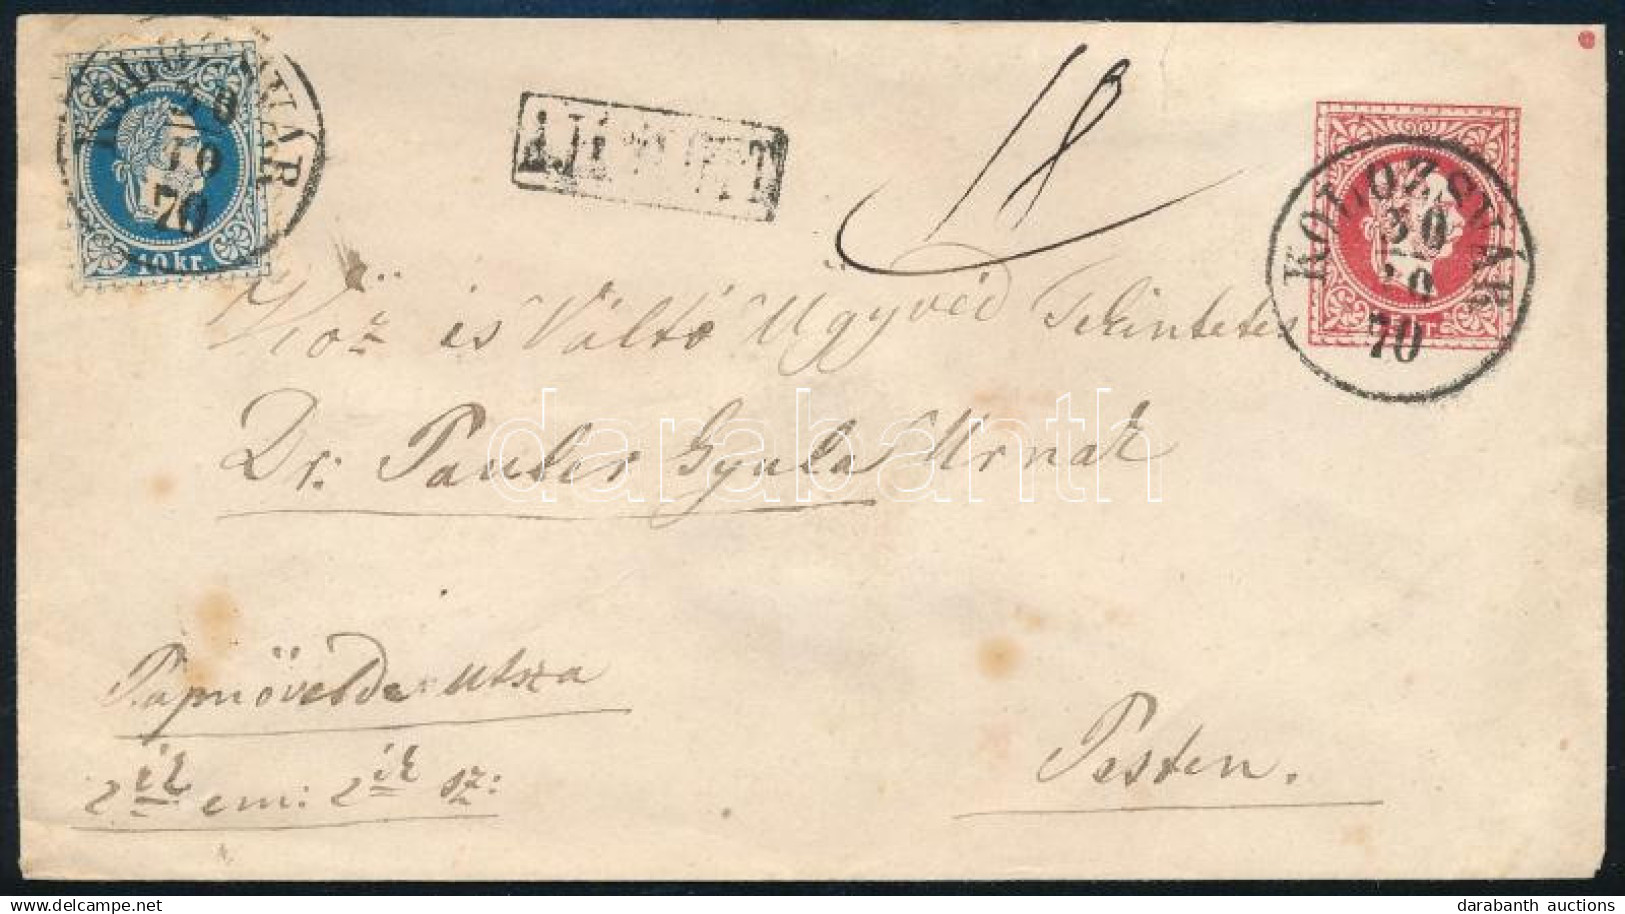 KOLOZSVÁR
30
10
70
10 kr.
AJÁNLOTT
18
KOLOZSVÁR
30
10
70
Köz és Váltó Ügyvéd Tekintetes
Dr: Pauler Gyula Urnak
darabanth
Papnövelde utsza
2ik em: 2ik sz:
Pesten.
www.delcampe.net
darabanth auctions